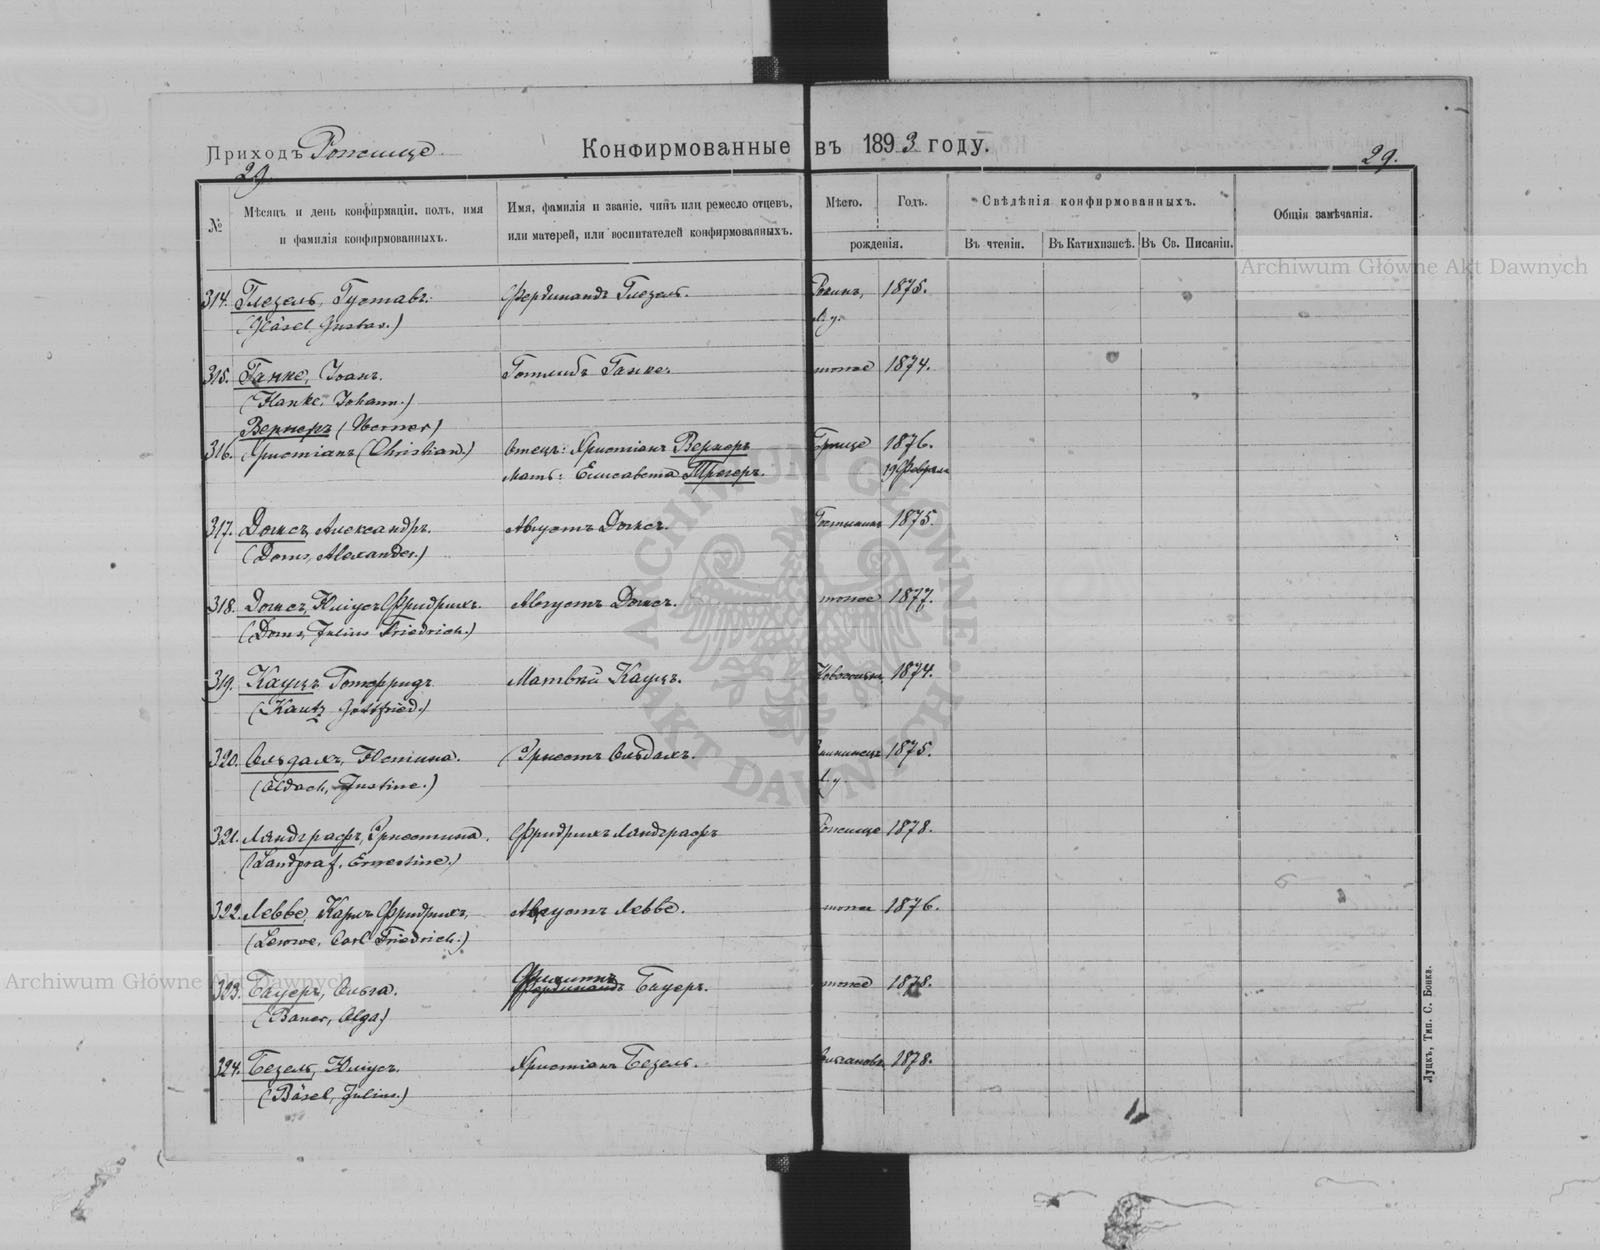 Приходъ Рожище
Конфирмованные въ 1893 году.
29.
29.
№
Мѣсяцъ и день конфирмаціи, полъ, имя
и фамилія конфирмованныхъ.
Имя, фамилія и званіе, чинъ или ремесло отцевъ,
или матерей, или воспитателей конфирмованныхъ.
Мѣсто.
Годъ.
рожденія.
Свѣдѣнія конфирмованныхъ.
Въ чтеніи.
Въ Катихизисѣ.
Въ Св. Писаніи.
Общія замѣчанія.
314. Глезель, Густавъ. Фердинандъ Глезель. 1875.
(Gläsel Gustav.)
315. Ганке, Іоанъ. Готлибъ Ганке. тоже 1874.
(Hanke, Johann.)
Вернеръ (Werner)
316. Христіанъ (Christian.) Отецъ: Христіанъ Вернеръ 1876.
Мать: Елисавета Трегеръ. 19 Февраля
317. Домсъ, Александръ. Августъ Домсъ. 1875.
(Doms, Alexander.)
318. Домсъ, Юліусъ Фридрихъ. Августъ Домсъ. тоже 1877.
(Doms, Julius Friedrich.)
319. Кауцъ Готфридъ Матвѣй Кауцъ. 1874.
(Kautz Gottfried.)
320. Ольдахъ, Юстина. Эрнстъ Ольдахъ. 1875.
(Oldach, Justine.)
321. Ландграфъ, Эрнестина. Фридрихъ Ландграфъ Рожище 1878.
(Landgraf, Ernestine.)
322. Левве, Карлъ Фридрихъ, Августъ Левве. тоже 1876.
(Lewwe, Carl Friedrich.)
323. Бауеръ, Ольга. Филиппъ Бауеръ. тоже 1878.
(Bauer, Olga)
324. Безель, Юліусъ. Христіанъ Безель. 1878.
(Bäsel, Julius.)
Луцкъ, Тип. С. Бонка.
Archiwum Główne Akt Dawnych
Archiwum Główne Akt Dawnych
ARCHIWUM GŁÓWNE
AKT DAWNYCH